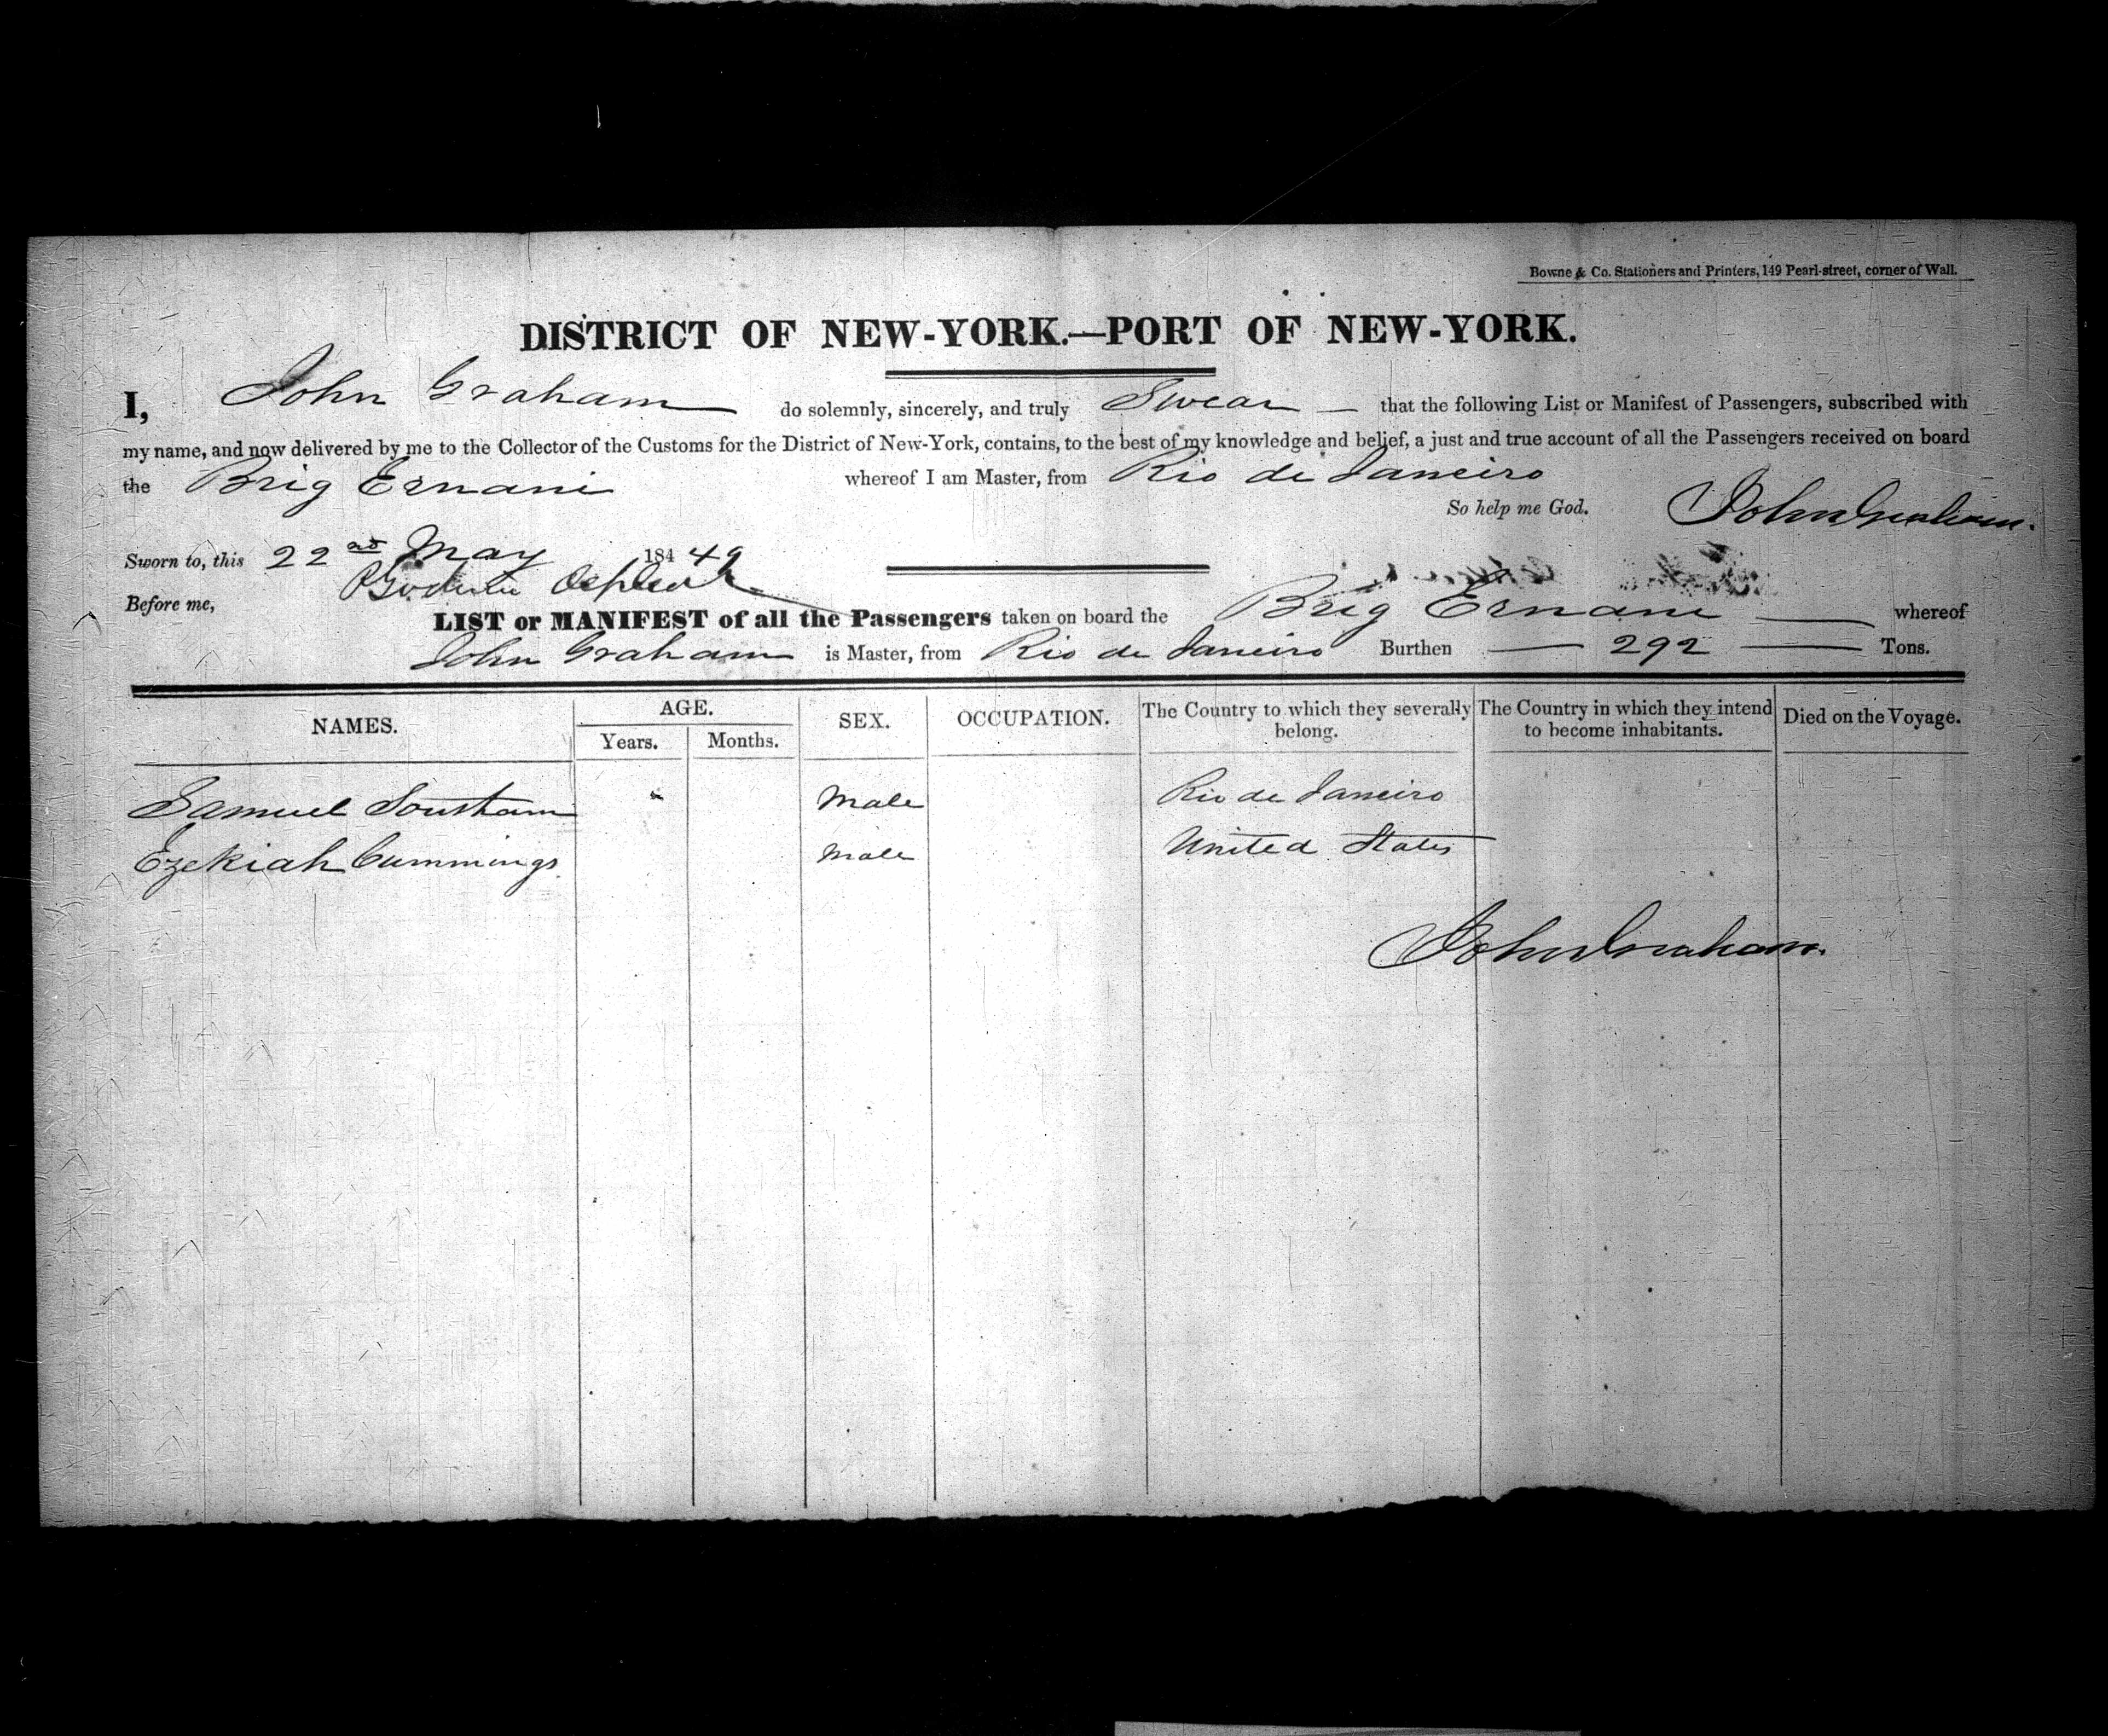 Bowne & Co. Stationers and Printers, 149 Pearl-street, corner of Wall.
DISTRICT OF NEW-YORK.—PORT OF NEW-YORK.
I, John Graham do solemnly, sincerely, and truly Swear — that the following List or Manifest of Passengers, subscribed with
my name, and now delivered by me to the Collector of the Customs for the District of New-York, contains, to the best of my knowledge and belief, a just and true account of all the Passengers received on board
the Brig Ernani whereof I am Master, from Rio de Janeiro
So help me God. John Graham.
Sworn to, this 22nd May 184 49
Before me,
LIST or MANIFEST of all the Passengers taken on board the Brig Ernani — whereof
John Graham is Master, from Rio de Janeiro Burthen — 292 — Tons.
NAMES. AGE. Years. Months. SEX. OCCUPATION. The Country to which they severally belong. The Country in which they intend to become inhabitants. Died on the Voyage.
Samuel Male Rio de Janeiro
Ezekiah Cummings. Male United States
John Graham.